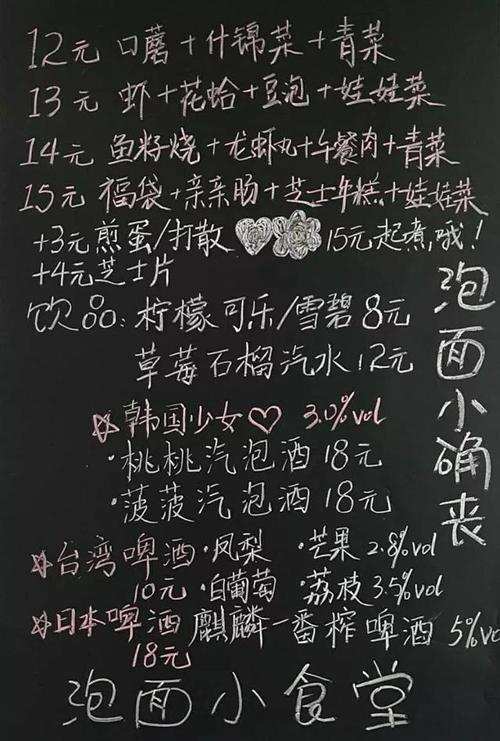 12元 口蘑+什锦菜+青菜
13元 虾+花蛤+豆泡+娃娃菜
14元 鱼籽烧+龙虾丸+午餐肉+青菜
15元 福袋+亲亲肠+芝士年糕+娃娃菜
+3元煎蛋/打散 15元起煮哦!
+4元芝士片
饮品:柠檬可乐/雪碧8元
草莓石榴汽水12元
韩国少女♡ 3.0%vol
·桃桃汽泡酒18元
·菠菠汽泡酒18元
台湾啤酒·凤梨 ·芒果2.8%vol
10元·白葡萄 ·荔枝3.5%vol
日本啤酒 麒麟一番榨啤酒 5%vol
18元
泡面小确丧
泡面小食堂